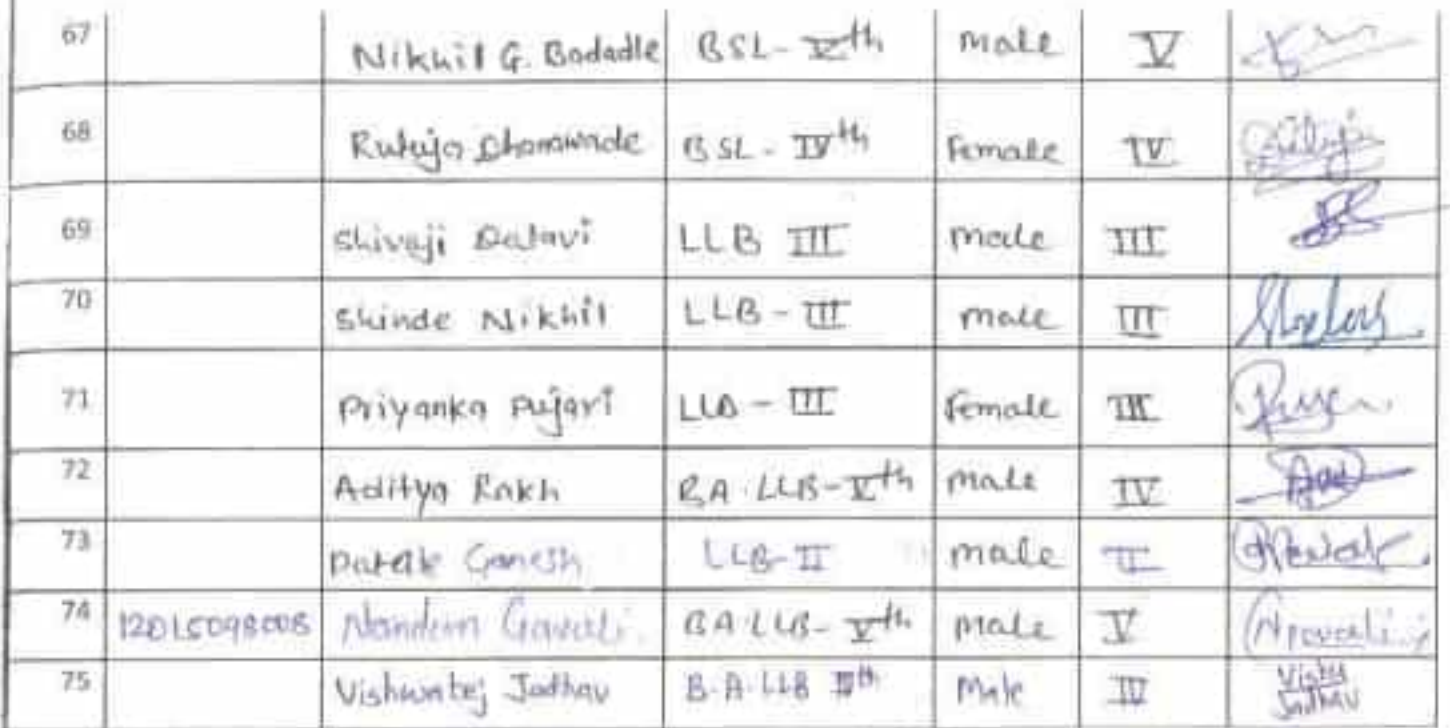 67 Nikhil G. Bodadle BSL - Vth male V
68 Rutuja BSL - IVth Female IV
69 Shivaji Dalavi LLB III male III
70 Shinde Nikhil LLB - III male III
71 Priyanka Pujari LLB - III Female III
72 Aditya Rakh BA.LLB - Vth male IV
73 Ganesh LLB - II male II
74 Gavali BA.LLB - Vth male V
75 Vishwatej Jadhav B.A.LLB IVth Male IV Jadhav